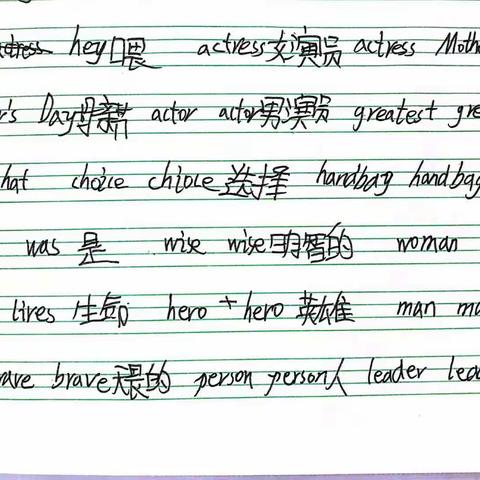 hey 喂 actress 女演员 actress Moth
r's Day 母亲节 actor actor 男演员 greatest gre
hat choice chioce 选择 handbag handbag
was 是 wise wise 明智的 woman
lives 生命 hero + hero 英雄 man ma
ave brave 勇 的 person person 人 leader lea